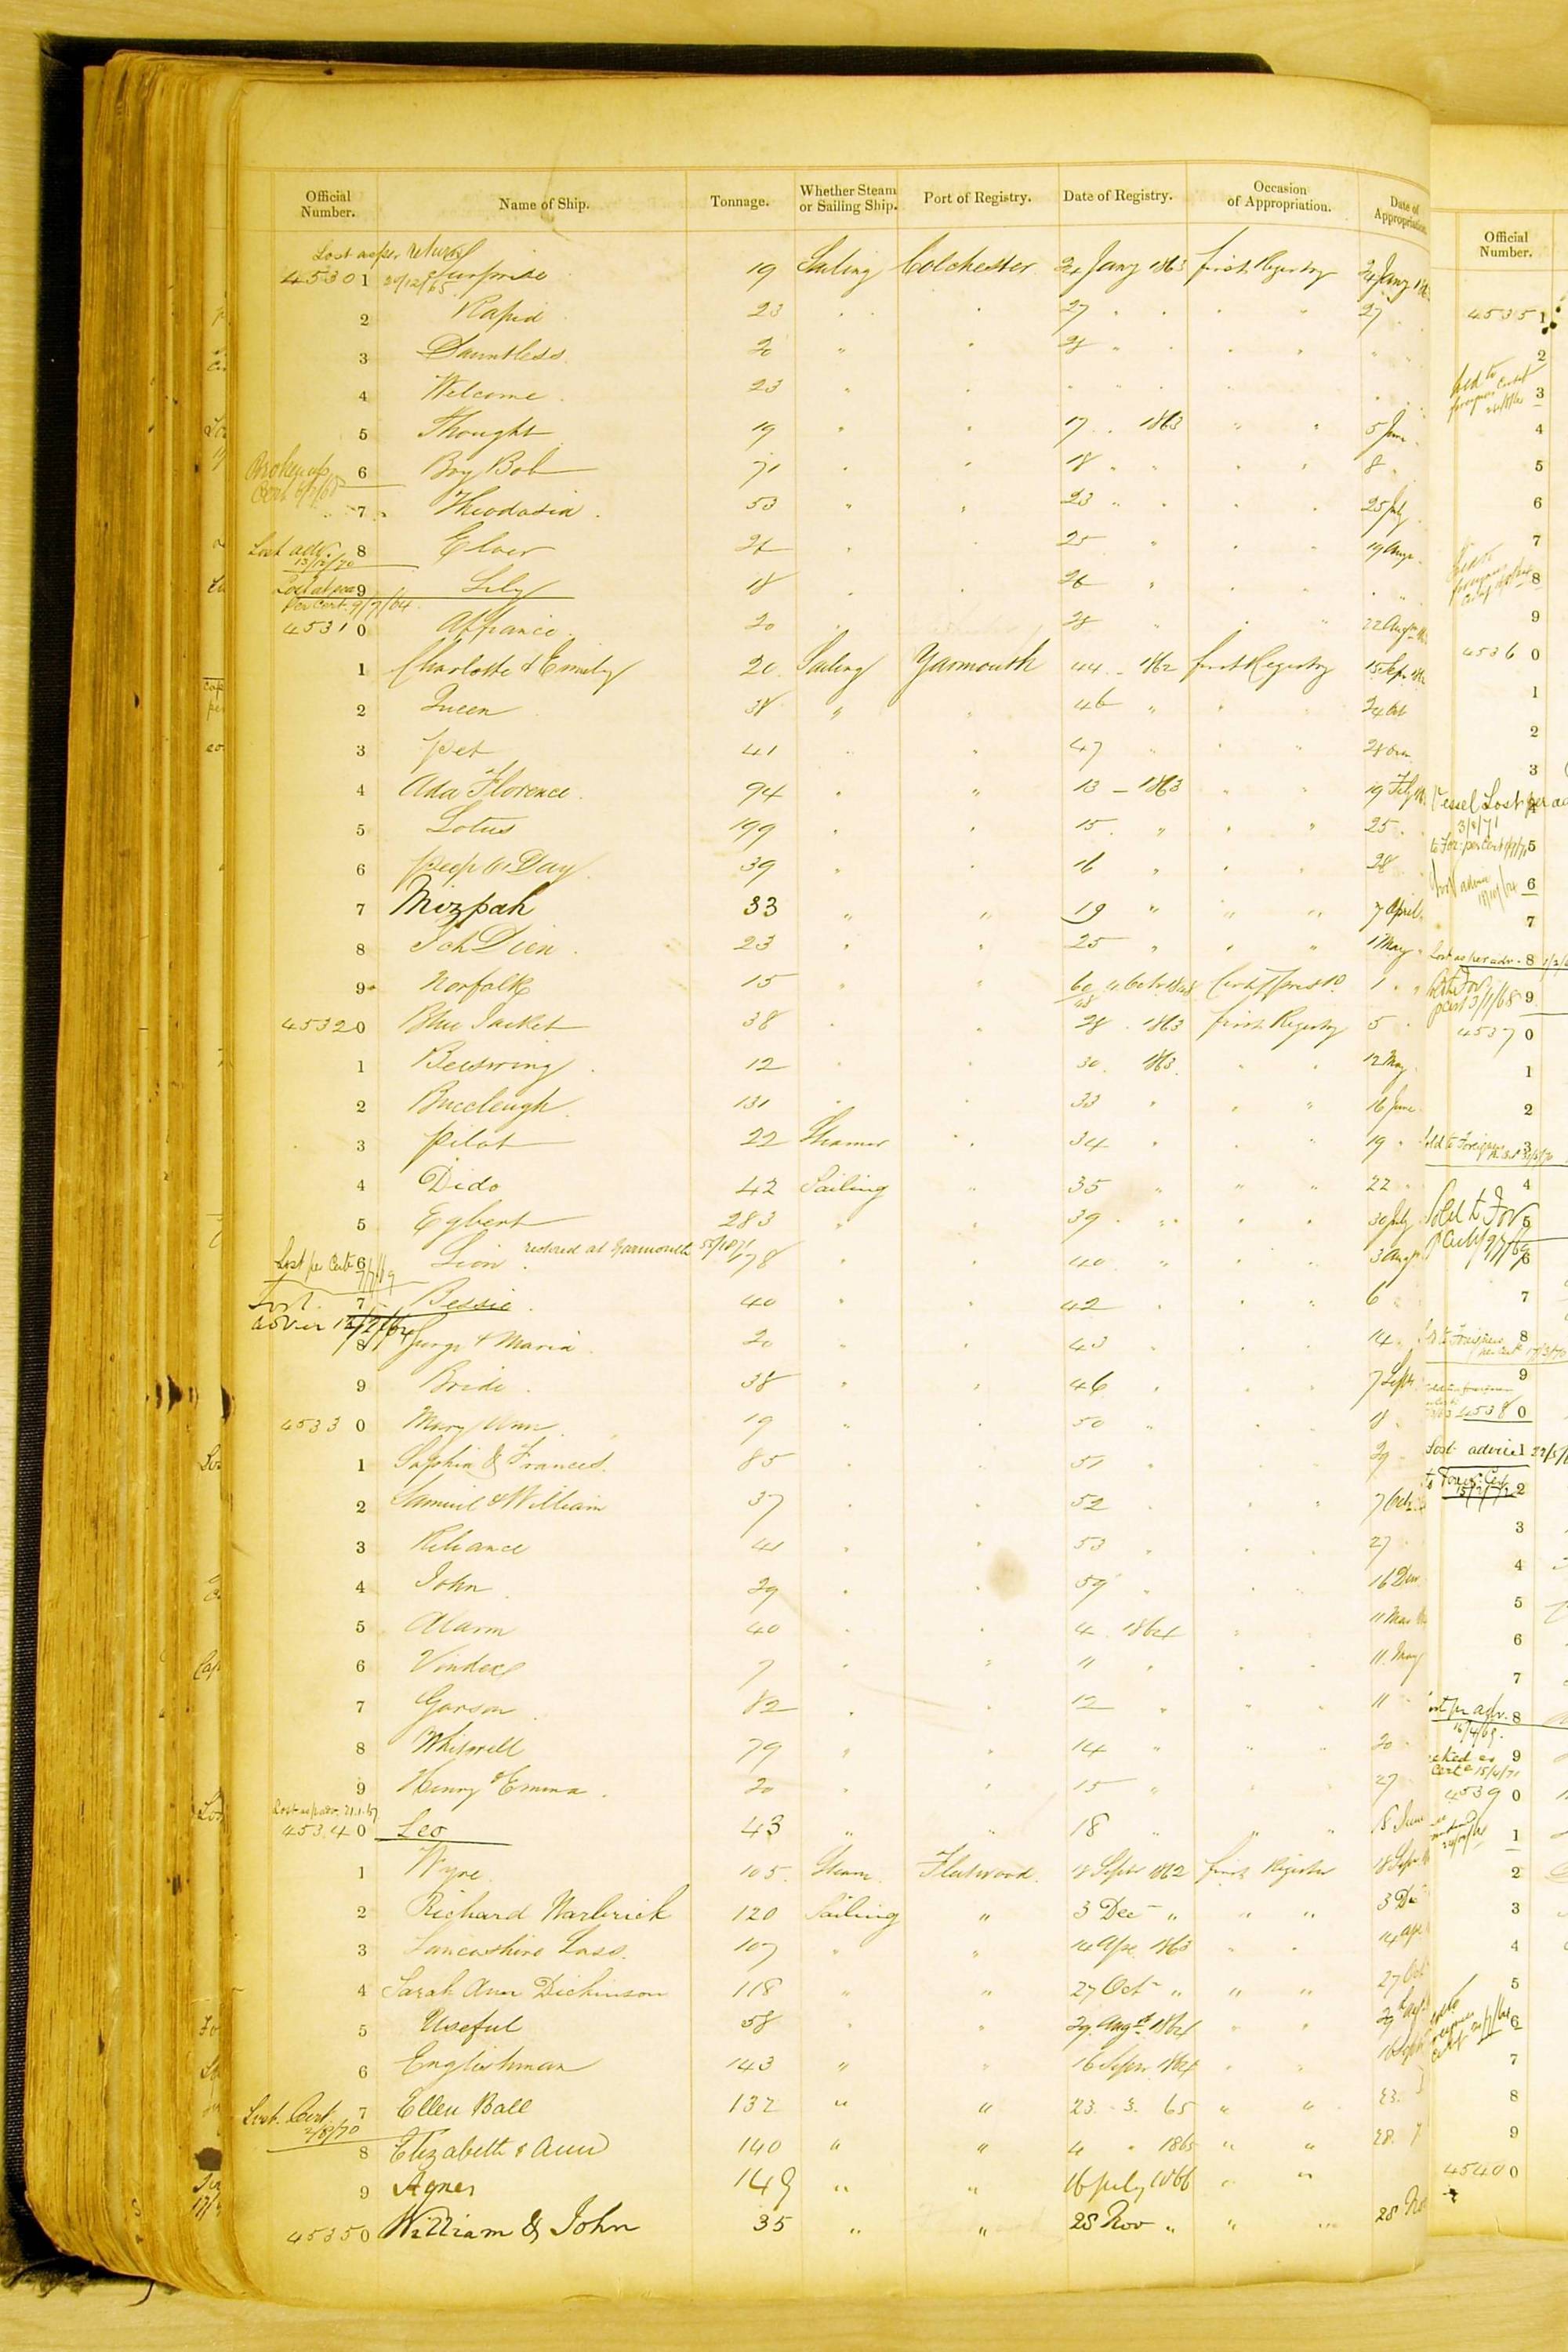 Official Number. Name of Ship. Tonnage. Whether Steam or Sailing Ship. Port of Registry. Date of Registry. Occasion of Appropriation. Date of Appropriation.
Lost as per return
45301 20/12/65 Surprise 19 Sailing Colchester 24 Jany 1863 first Registry 24 Jany
2 Rapid 23 " " 27 " " " " 27
3 Dauntless 20 " " 28 " " " " "
4 Welcome 23 " " " " " "
5 Thought 19 " " 17 " 1863 " " 5 June
Broken up
6 Boy Bob 71 " " 18 " " " " 8
Cert
7 Theodosia 53 " " 23 " " " " 25 July
Lost adv. 8 Elver " " 25 " " " 19 Augt
13/12/70
Lost at sea 9 Lily 18 " " 26 " " "
per Cert. 9/7/64
45310 Affiance 20 " " 28 " " " 22 Augt
1 Charlotte & Emily 20 Sailing Yarmouth 44 - 1862 first Registry 15 Sep.
2 Queen 38 " " 46 " " " 24 Oct
3 Pet 41 " " 47 " " " 28
4 Ada Florence 94 " " 13 - 1863 " " 19 Feby
5 Lotus 199 " " 15 " " " 25
6 Peep o' Day 39 " " 16 " " " 28
7 Mizpah 33 " " 19 " " " 7 April
8 Ich Dien 23 " " 25 " " " 1 May
9 Norfolk 15 " " 60/48 1
45320 Blue Jacket 38 " " 28 1863 first Registry 5
1 Beeswing 12 " " 30 1863 " " 12 May
2 Buccleugh 131 " " 33 " " " 16 June
3 Pilot 22 Steamer " 34 " " " 19
4 Dido 42 Sailing " 35 " " " 22
5 Egbert 283 " " 39 " " " 30 July
Lost per Cert 6 Lion restored at Yarmouth 78 " " 40 " " " 3 Aug
Lost 7 Bessie 40 " " 42 " " " 6
advice
8 George & Maria 20 " " 43 " " " 14
9 Bride 38 " " 46 " " " 7 Sepr
45330 Mary Ann 19 " " 50 " " 18
1 Sophia & Frances 85 " " 51 " " 29
2 Samuel & William 37 " " 52 " " 7 Oct
3 Reliance 41 " " 53 " " " 27
4 John 29 " " 59 " " " 16 Decr
5 Alarm 40 " " 4 1864 " " 11 Mar
6 Vindex 7 " " 11 " " " 11 May
7 Garson 82 " " 12 " " " 11
8 Whitwell 79 " " 14 " " " 20
9 Henry & Emma 20 " " 15 " " " 27
Lost as p adv. 21.1.67
45340 Leo 43 " " 18 " " " 18 June
1 Wyre 105 Steam Fleetwood 18 Sepr 1862 first Register 18 Sepr
2 Richard Warbrick 120 Sailing " 3 Dec " " " 3 De
3 Lancashire Lass 107 " " 14 Apr 1863 " " 14 Apr
4 Sarah Ann Dickinson 118 " " 27 Oct " " " 27 Oct
5 Useful 58 " " 29 Augt 1864 " " 29 Augt
6 Englishman 143 " " 16 Sepr 1864 " " 16 Sept
Lost. Cert 7 Ellen Ball 132 " " 23. 3. 65 " " 23.
2/8/70
8 Elizabeth & Ann 140 " " 4 " 1865 " " 28.
9 Agnes 149 " " 16 July 1866 " "
45350 William & John 35 " " 28 Nov " " " 28 Nov
Official Number.
45351
2
Sold to foreigners Cert
3
4
5
6
7
8
9
45360
1
2
3
Vessel Lost per ad
4
3/8/71
5
6
7
Lost as per adv. 8
9
45370
1
2
Sold to Foreigners 3
4
Sold to For 5
6
7
8
9
45380
Lost advice 1
2
3
4
5
6
7
8
16/4/69.
9
Cert 15/4/71
45390
1
2
3
4
5
6
7
8
9
45400